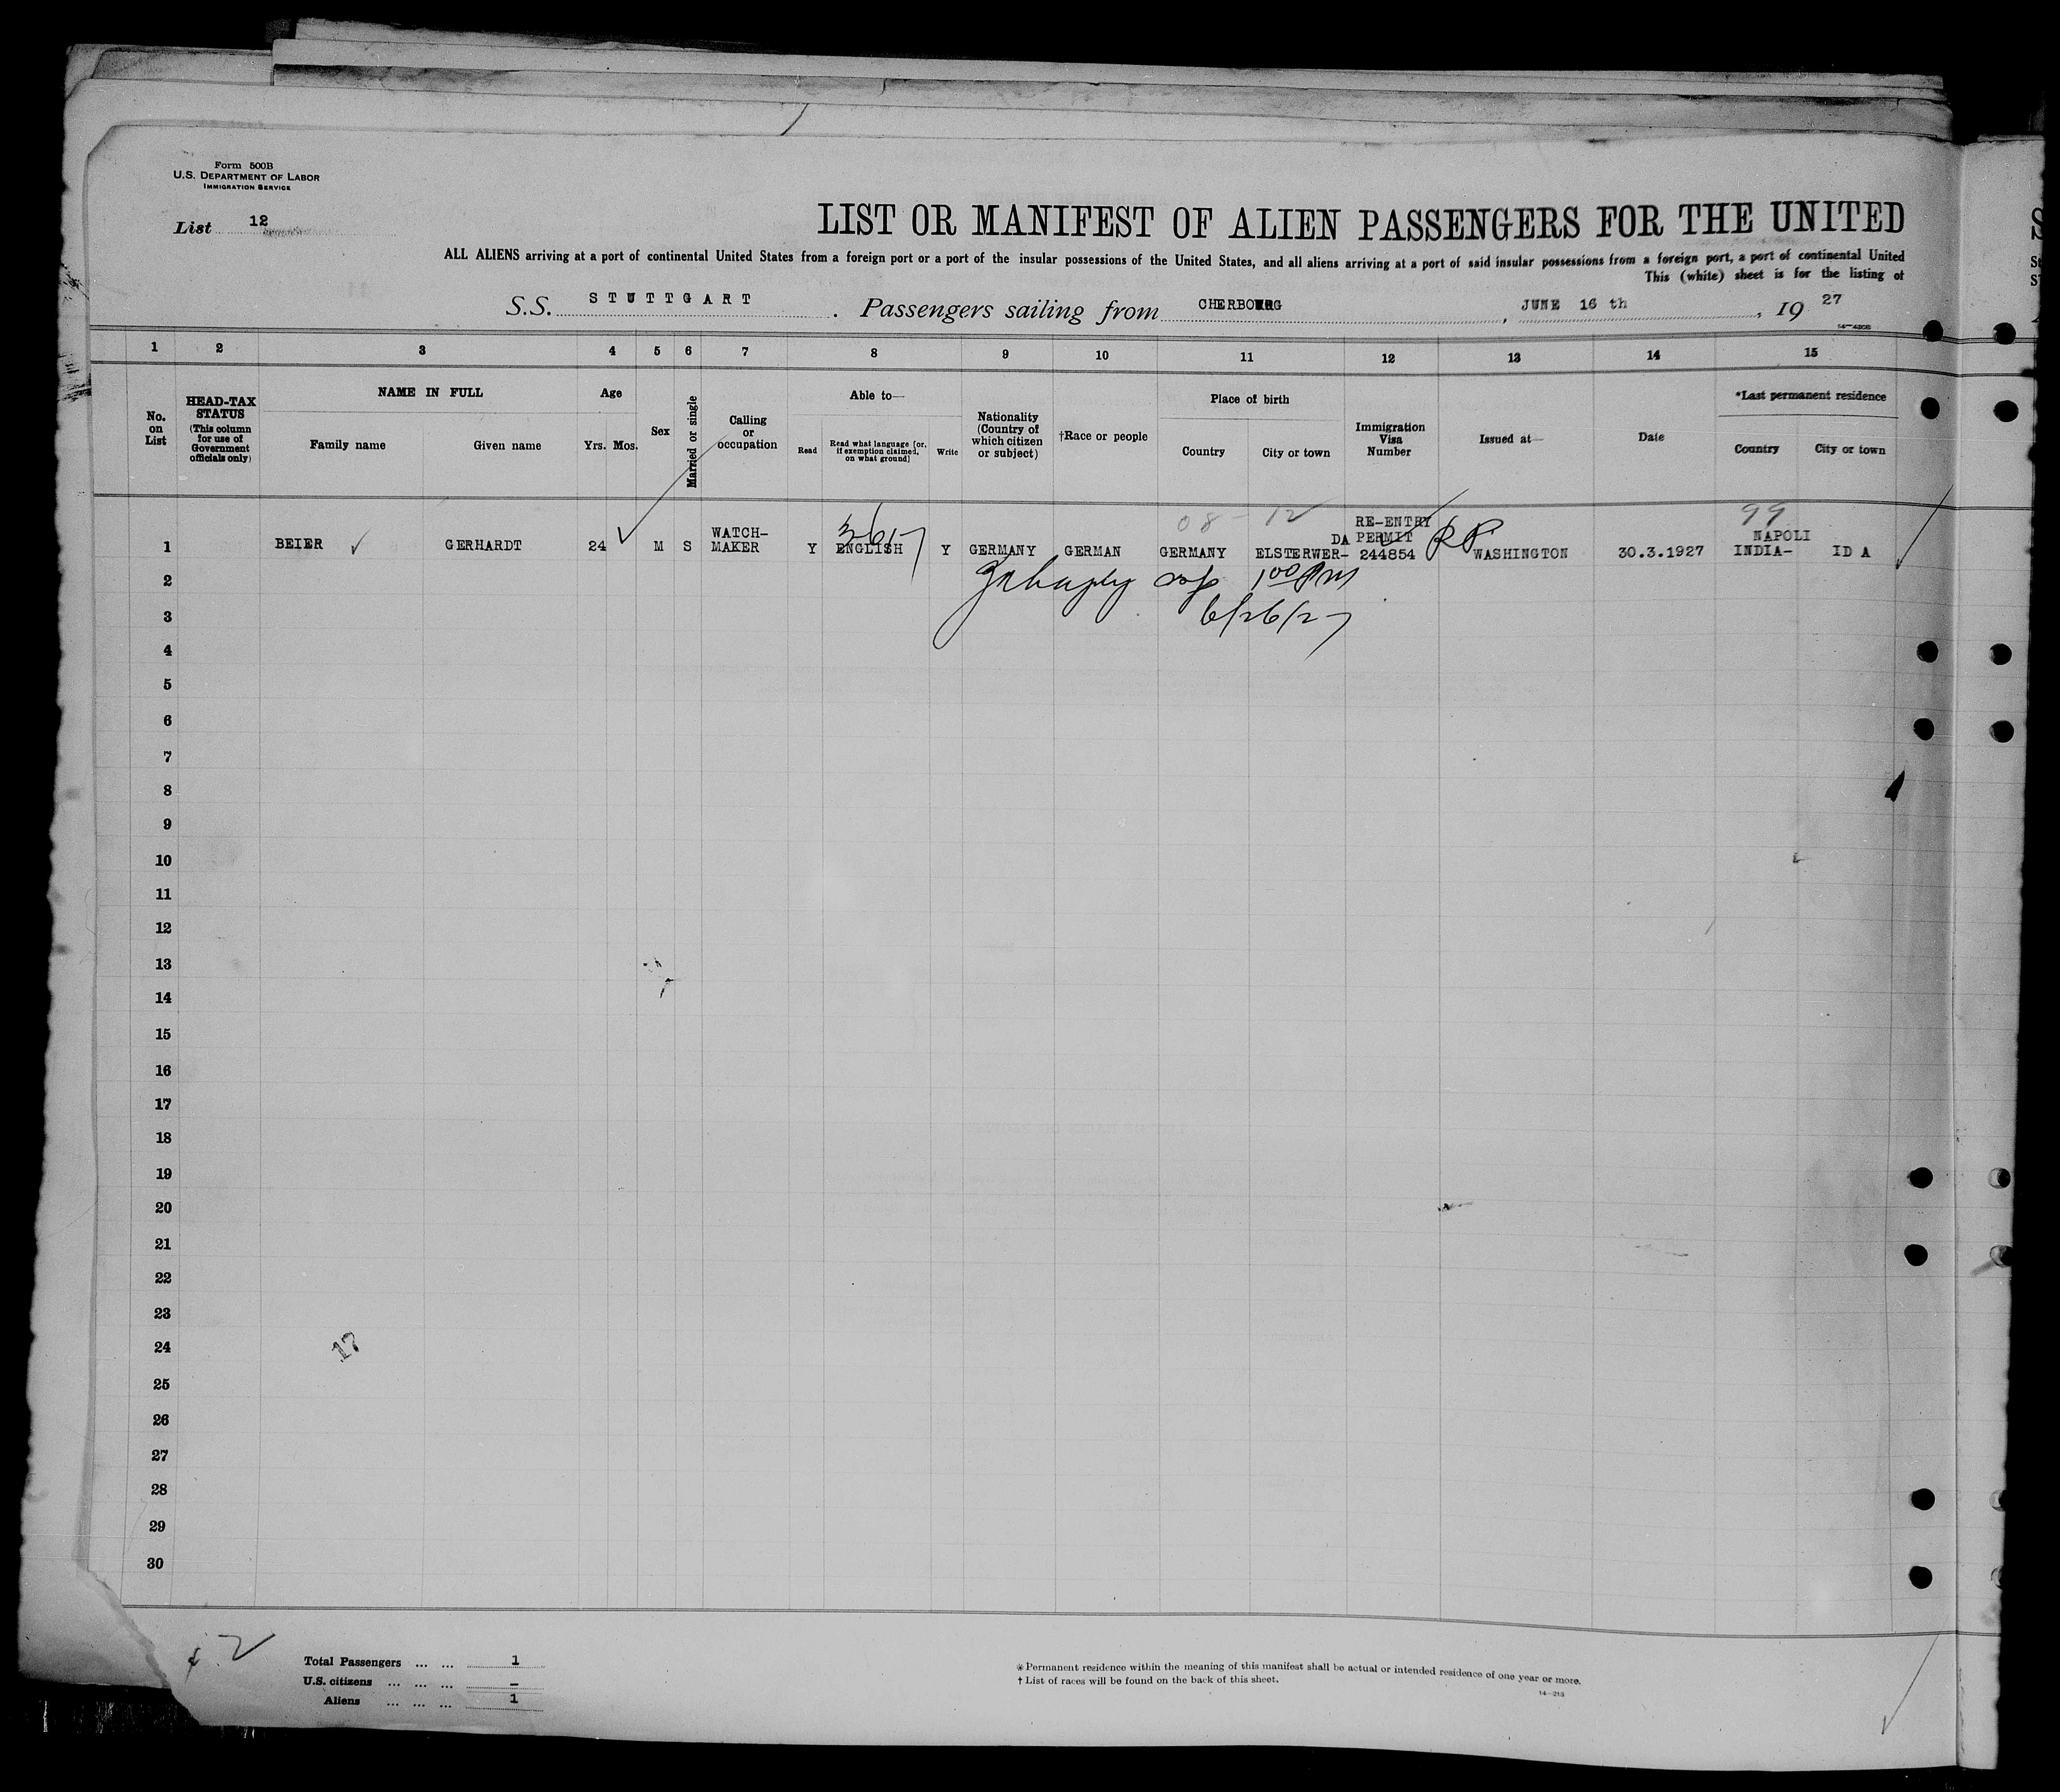 Form 500B
U.S. DEPARTMENT OF LABOR
IMMIGRATION SERVICE
List 12
LIST OR MANIFEST OF ALIEN PASSENGERS FOR THE UNITED
ALL ALIENS arriving at a port of continental United States from a foreign port or a port of the insular possessions of the United States, and all aliens arriving at a port of said insular possessions from a foreign port, a port of continental United
This (white) sheet is for the listing of
S.S. STUTTGART . Passengers sailing from CHERBOURG , JUNE 16 th , 19 27
1 2 3 4 5 6 7 8 9 10 11 12 13 14 15
No. on List
HEAD-TAX STATUS
(This column for use of Government officials only)
NAME IN FULL
Family name Given name
Age
Yrs. Mos.
Sex
Married or single
Calling or occupation
Able to—
Read
Read what language [or, if exemption claimed, on what ground]
Write
Nationality (Country of which citizen or subject)
†Race or people
Place of birth
Country City or town
Immigration Visa Number
Issued at—
Date
*Last permanent residence
Country City or town
08 - 12 99
WATCH- 3617 RE-ENTRY RP NAPOLI
DA PERMIT
1 BEIER GERHARDT 24 M S MAKER Y ENGLISH Y GERMANY GERMAN GERMANY ELSTERWER- 244854 WASHINGTON 30.3.1927 INDIA- ID A
2 1 00 PM
3 6/26/27
4
5
6
7
8
9
10
11
12
13
14
15
16
17
18
19
20
21
22
23
24 17
25
26
27
28
29
30
Total Passengers ... ... 1
U.S. citizens ... ... ... –
Aliens ... ... ... 1
* Permanent residence within the meaning of this manifest shall be actual or intended residence of one year or more.
† List of races will be found on the back of this sheet.
14—213